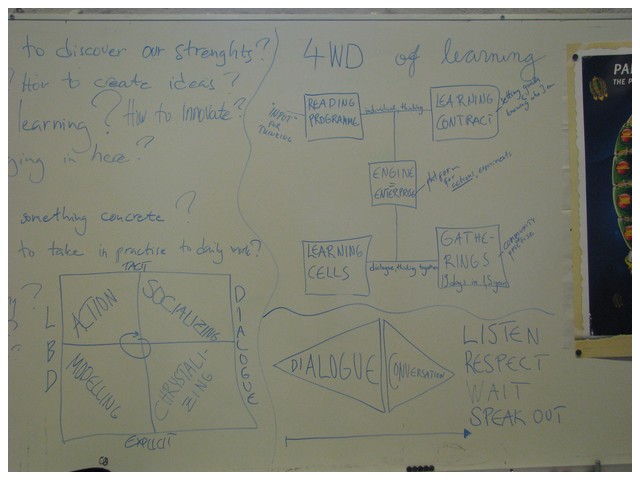 to discover our strenghts?
? How to create ideas?
learning? How to Innovate?
ging in here?
something concrete?
to take in practise to daily work?
?
TACIT
ACTION
SOCIALIZING
LBD
DIALOGUE
MODELLING
CHRYSTALI-
ZING
EXPLICIT
4WD of learning
"INPUT
FOR
THINKING
READING
PROGRAMME
individual, thinking
LEARNING
CONTRACT
setting goals
knowing who I am
ENGINE
=
ENTERPRISE
platform
for actions, experiments
LEARNING
CELLS
dialogue, thinking together
GATHE-
RINGS
community
practise
DIALOGUE
CONVERSATION
LISTEN
RESPECT
WAIT
SPEAK OUT
PA
THE P